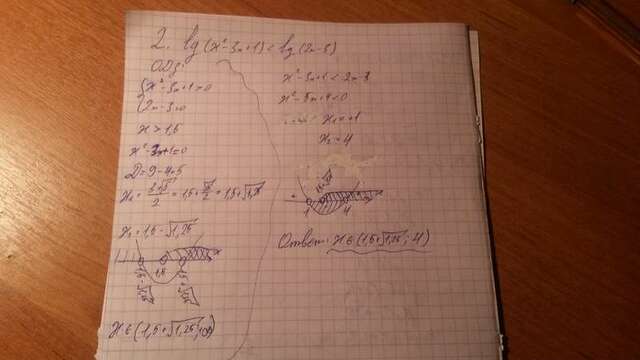 2. lg(x²-3x+1)<lg(2x-3)
ОДЗ:
{x²-3x+1>0
2x-3>0
x>1,5
x²-3x+1=0
D=9-4=5
x₂=(3+√5)/2=1,5+√5/2=1,5+√1,25
x₁=1,5-√1,25
1,5-√1,25 1,5 1,5+√1,25
x∈(1,5+√1,25;+∞)
x²-3x+1<2x-3
x²-5x+4<0
x₁=+1
x₂=4
1 1,5+√1,25 4
Ответ: x∈(1,5+√1,25;4)